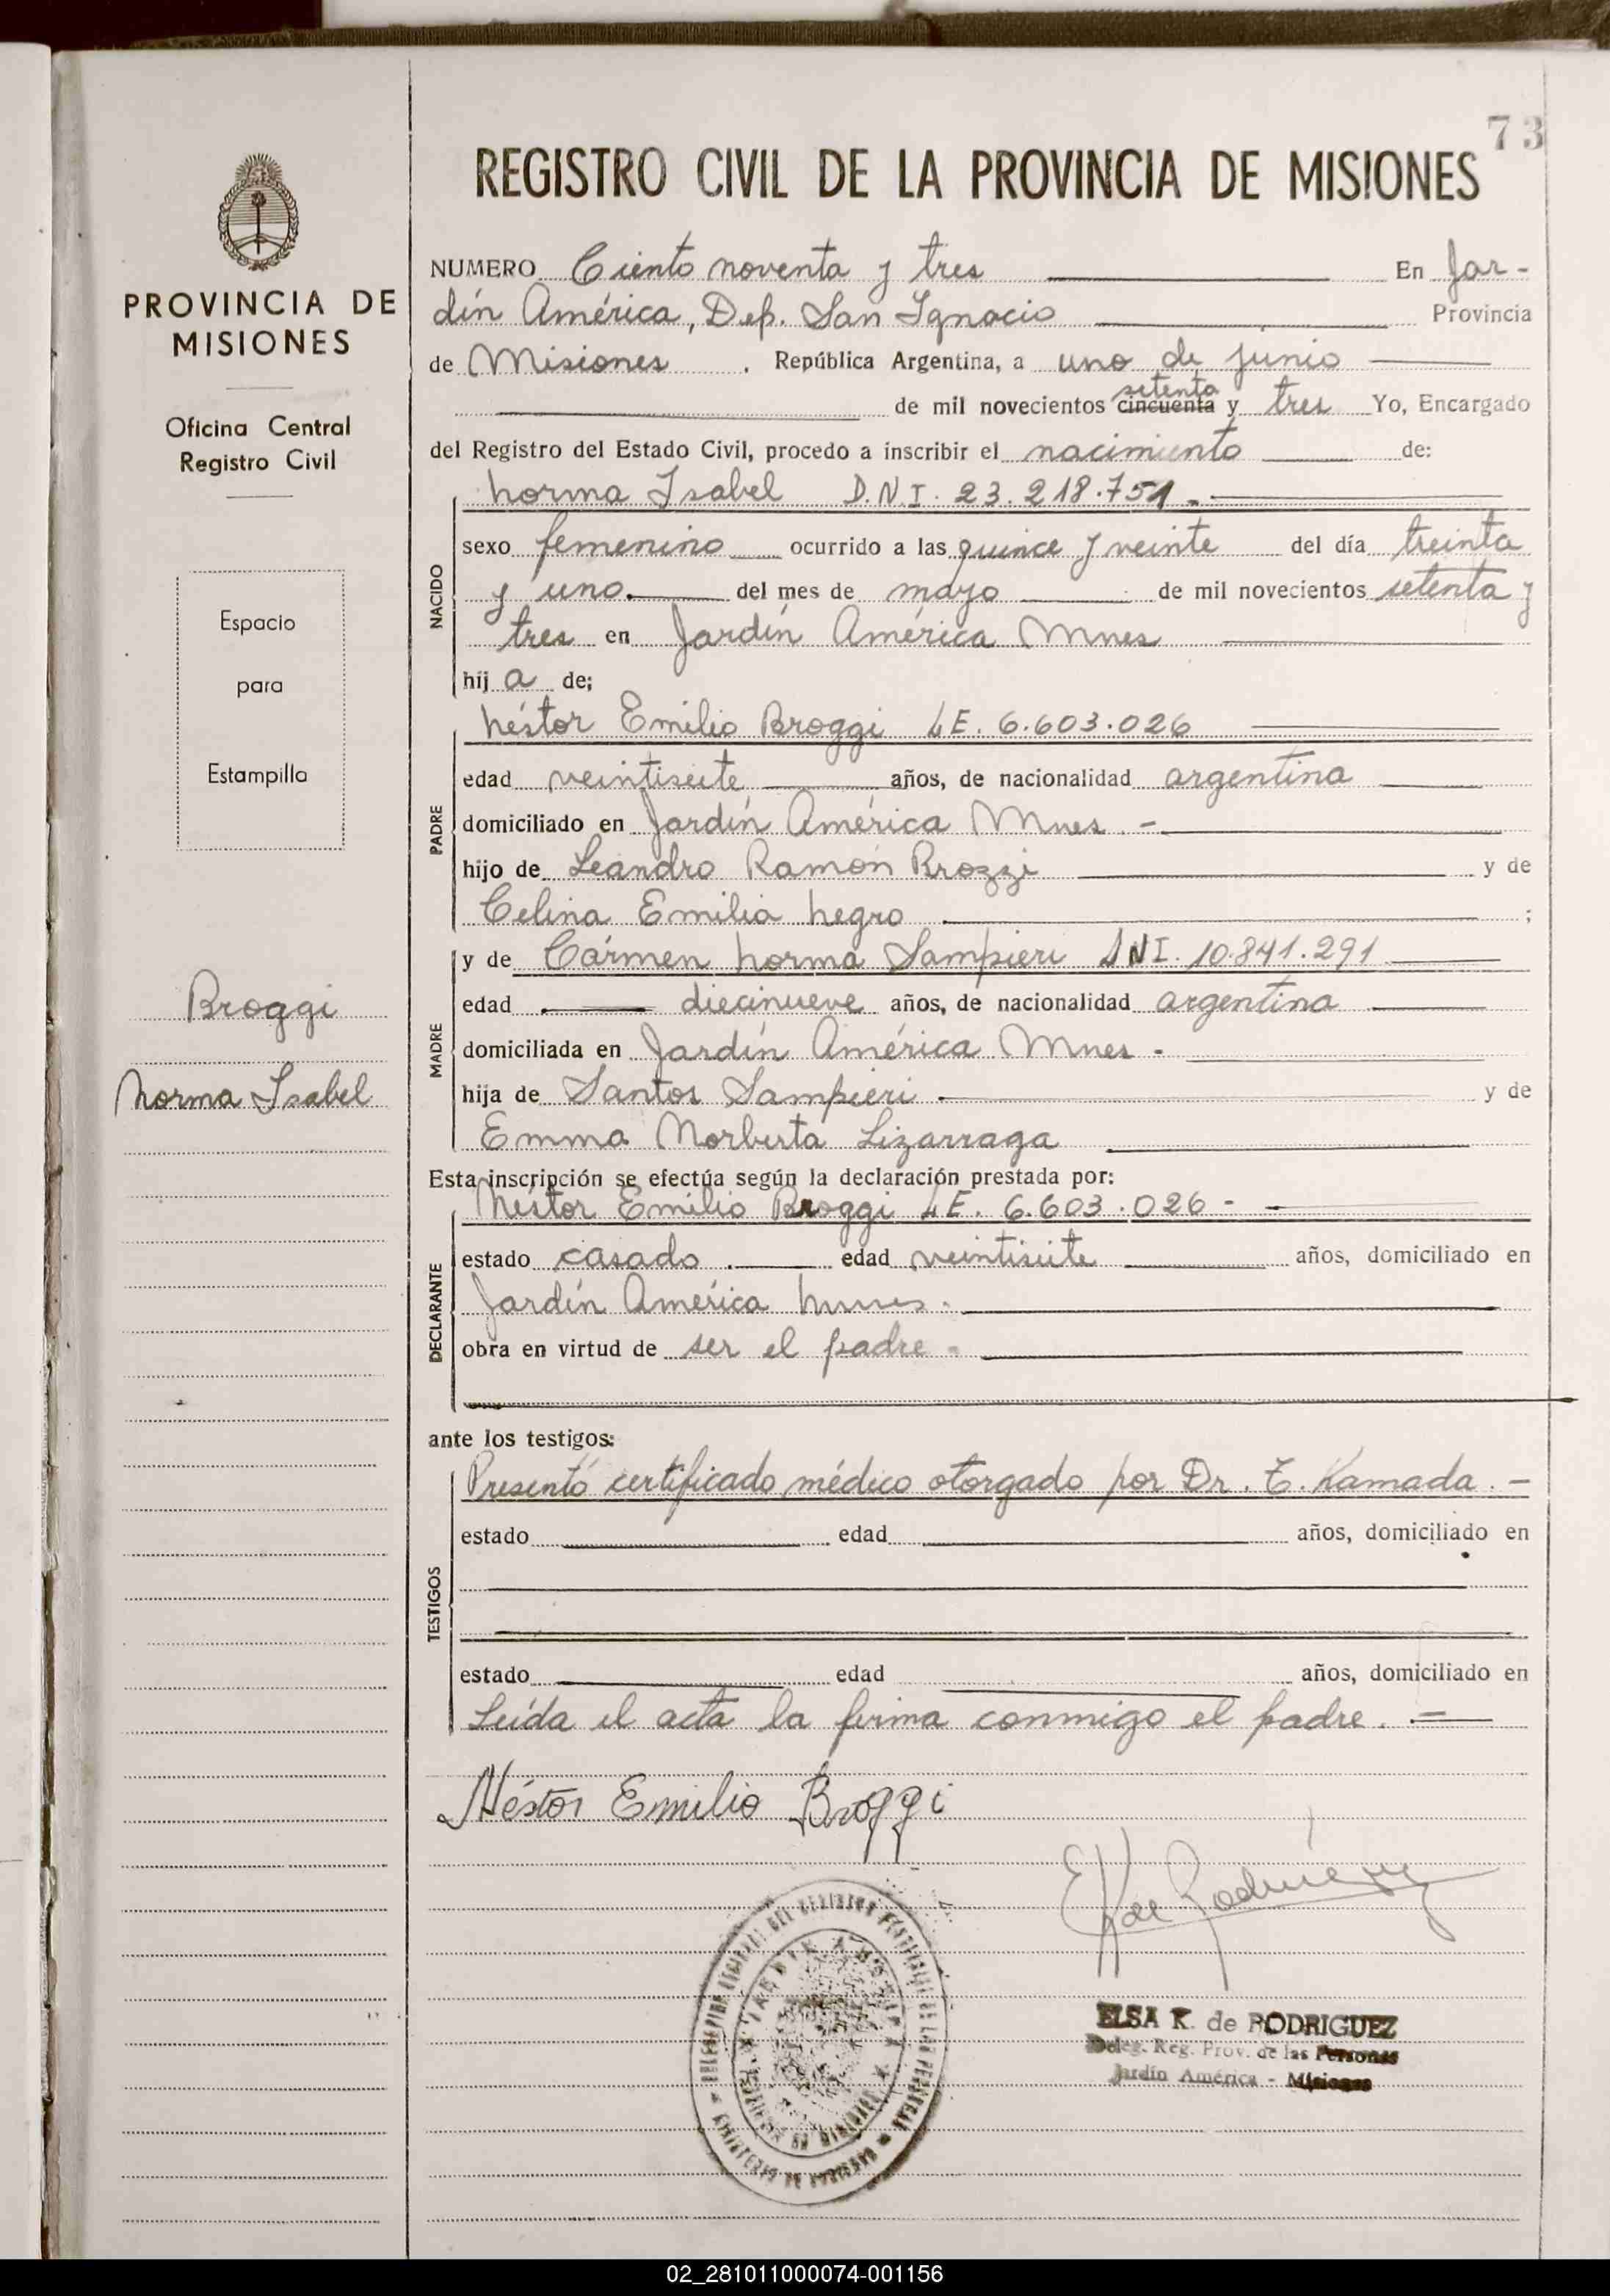 73
REGISTRO CIVIL DE LA PROVINCIA DE MISIONES
PROVINCIA DE
MISIONES
Oficina Central
Registro Civil
Espacio
para
Estampilla
Broggi
Norma Isabel
NUMERO Ciento noventa y tres En Jar-
dín América, Dep. San Ignacio Provincia
de Misiones . República Argentina, a uno de junio
setenta
de mil novecientos cincuenta y tres Yo, Encargado
del Registro del Estado Civil, procedo a inscribir el nacimiento de:
Norma Isabel D.N.I. 23.218.751.-
NACIDO
sexo femenino ocurrido a las quince y veinte del día treinta
y uno. del mes de mayo de mil novecientos setenta y
tres en Jardín América Mnes
hij a de;
Néstor Emilio Broggi LE. 6.603.026
PADRE
edad veintisiete años, de nacionalidad argentina
domiciliado en Jardín América Mnes. -
hijo de Leandro Ramón Brozzi y de
Celina Emilia Negro ;
y de Cármen Norma Sampieri DNI. 10.841.291
MADRE
edad diecinueve años, de nacionalidad argentina
domiciliada en Jardín América Mnes -
hija de Santos Sampieri y de
Emma Norberta Lizarraga
Esta inscripción se efectúa según la declaración prestada por:
Néstor Emilio Broggi LE. 6.603.026 -
DECLARANTE
estado casado edad veintisiete años, domiciliado en
Jardín América Mnes.
obra en virtud de ser el padre -
ante los testigos:
Presentó certificado médico otorgado por Dr. T. Kamada. -
TESTIGOS
estado edad años, domiciliado en
estado edad años, domiciliado en
Leída el acta la firma conmigo el padre. -
Néstor Emilio Broggi
EK de Rodriguez
ELSA K. de RODRIGUEZ
Deleg. Reg. Prov. de las Personas
Jardín América - Misiones
02_281011000074-001156